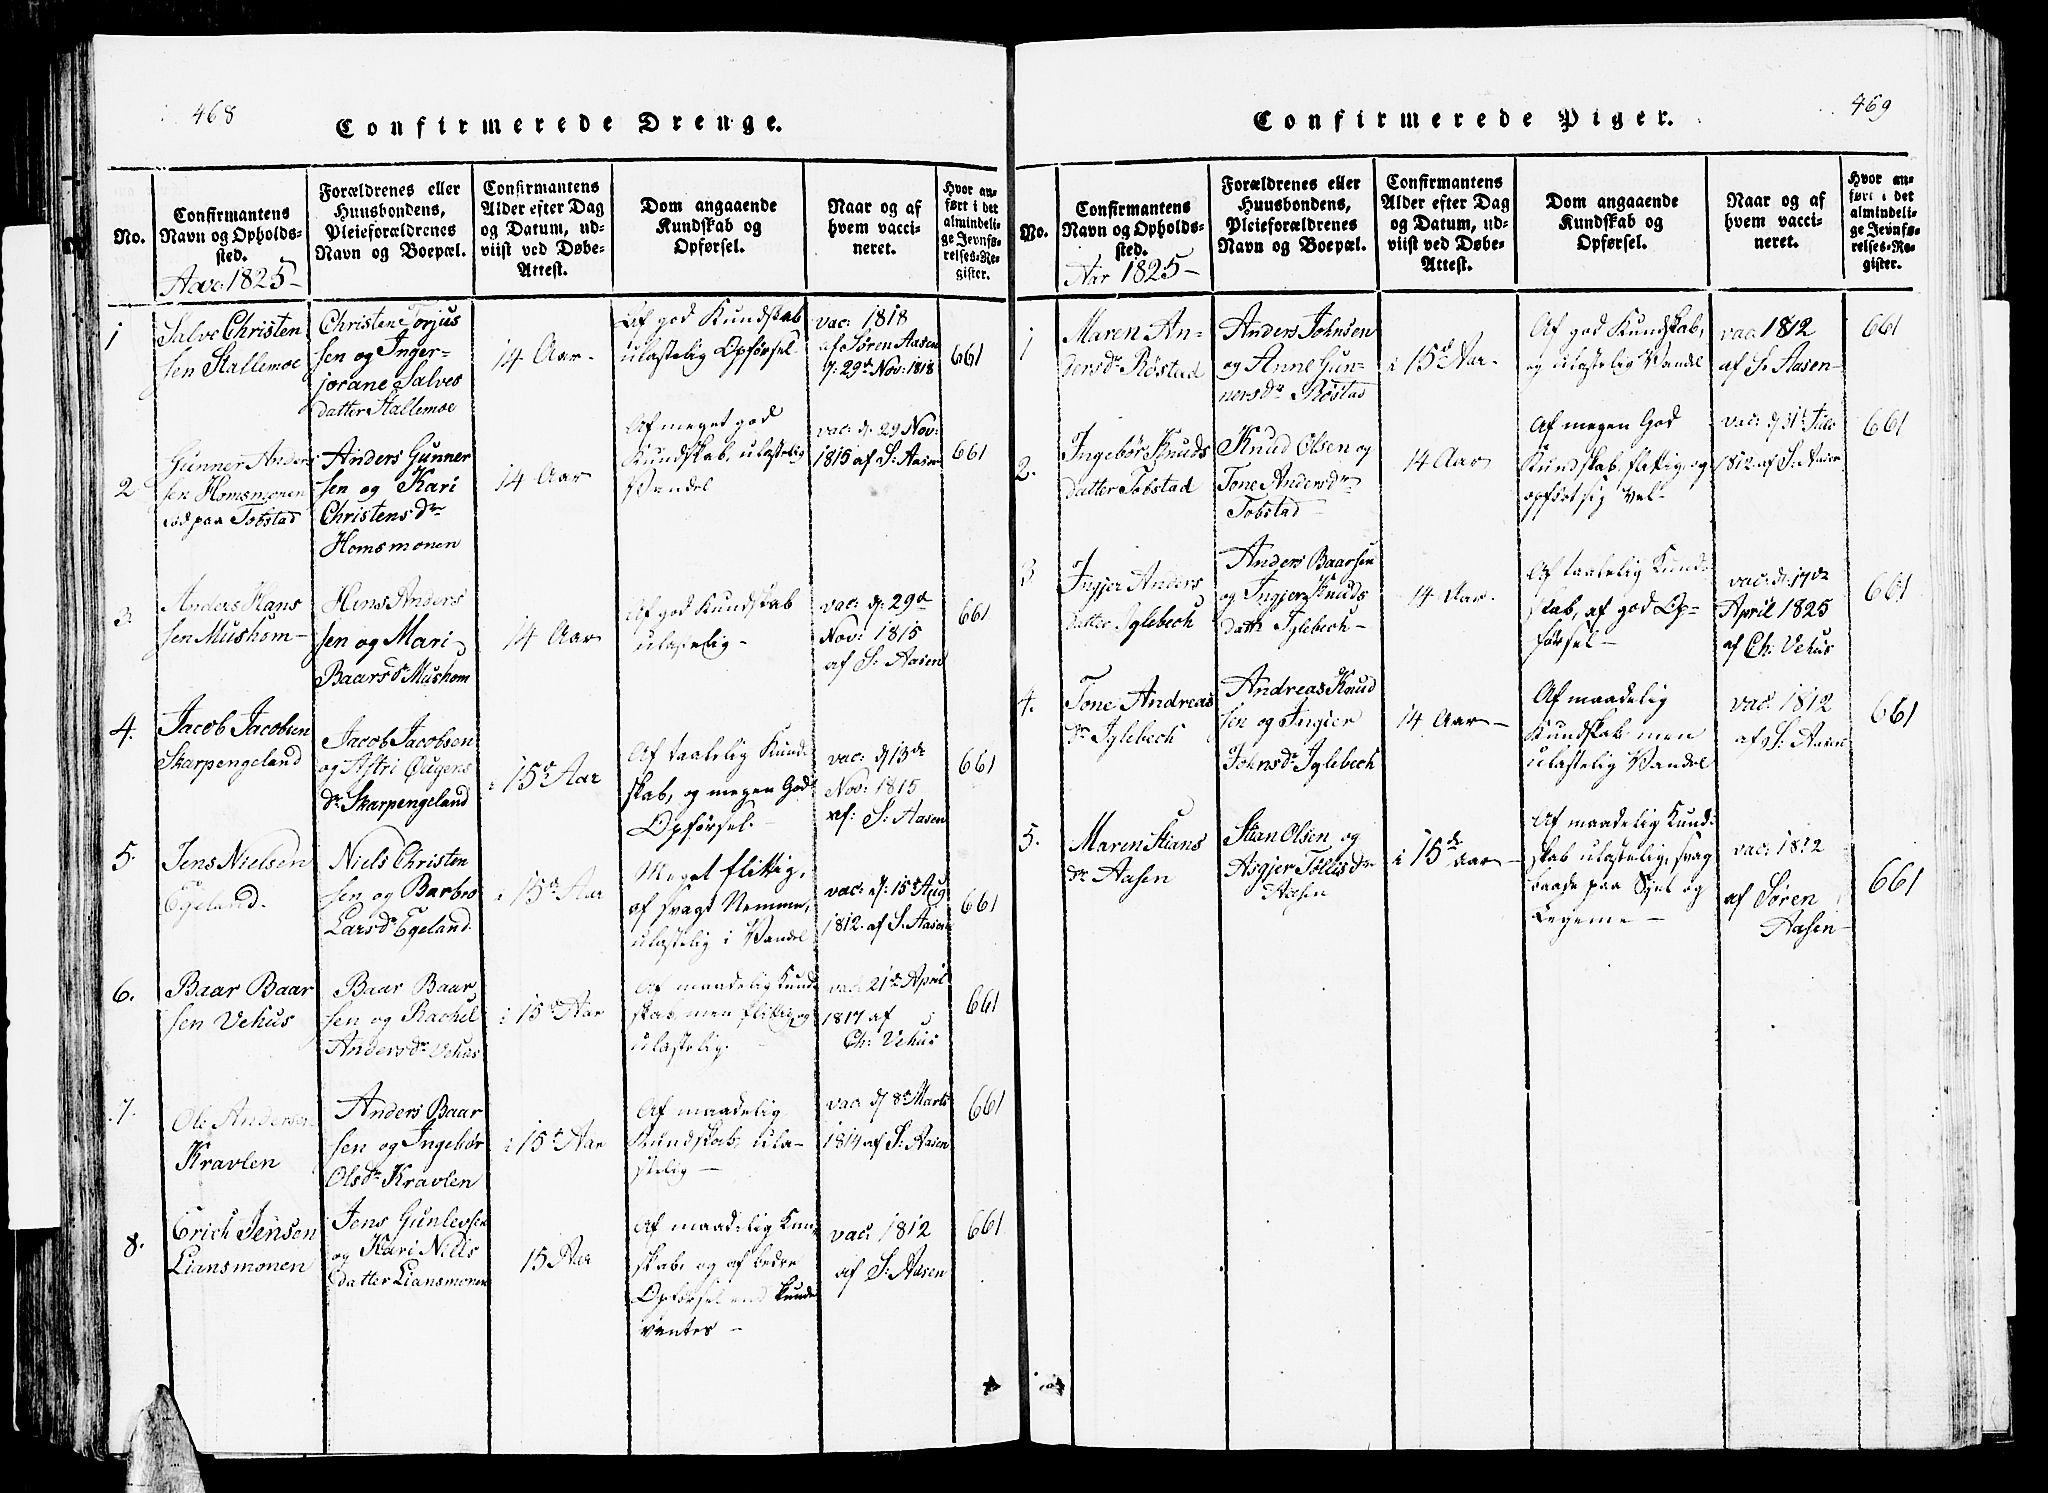 468
Confirmerede Drenge.
No.
Confirmantens
Navn og Opholds-
sted.
Aar 1825
Forældrenes eller
Huusbondens,
Pleieforældrenes
Navn og Boepæl.
Confirmantens
Alder efter Dag
og Datum, ud-
viist ved Døbe-
Attest.
Dom angaaende
Kundskab og
Opførsel.
Naar og af
hvem vacci-
neret.
Hvor an-
ført i det
almindeli-
ge Jevnfø-
relses-Re-
gister.
1
Salve Christen
sen Stallemoe
Christen Torjus
sen og Inger-
jorane Salves
datter Stallemoe
14 Aar-
Af god Kundskab
ulastelig Opførsel
vac: 1818
af Søren Aasen
d: 29de Nov: 1818
661
2
Gunner Anders
sen Homsmonen
paa Tobstad
Anders Gunner
sen og Kari
Christensdr
Homsmonen
14 Aar
Af meget god
Kundskab, ulastelig
Vandel
vac: d. 29 Nov:
1815 af S: Aasen
661
3.
Anders Hans
sen Mushom-
Hans Anders
sen og Mari
Baarsdr Mushom
14 Aar
Af god Kundskab
ulastelig-
vac: d: 29de
Nov: 1815
af S: Aasen
661
4.
Jacob Jacobsen
Skarpengeland
Jacob Jacobsen
og Astri Øugens
dr Skarpengeland
i 15de Aar
Af taalelig Kund-
skab, og megen God
Opførsel.-
vac: d 13de
Nov: 1815
af: S: Aasen
661
5.
Jens Nielsen
Egeland.
Niels Christen
sen og Barbro
Larsdr Egeland.
i 15de Aar
Meget flittig,
af svagt Nemme,
ulastelig i Vandel
vac: d: 15de Aug
1812. af S. Aasen
661
6.
Baar Baar
sen Vehus
Baar Baar
sen og Rachel
Andersdr Vehus
i 15de Aar
Af maadelig Kund
skab, men flittig og
ulastelig.
vac: 21de April
1817 af
Ch: Vehus
661
7.
Ole Andersen
Kravlen
Anders Baar
sen og Ingebør
Olsdr Kravlen
i 15de Aar
Af maadelig
Kundskab, ula-
stelig -
vac: d 8de Marts
1814 af S: Aasen
661
8.
Erich Jensen
Liansmonen
Jens Gunlevsen
og Kari Niels
datter Liansmonen
15 Aar
Af maadelig Kun-
skab, og af bedre
Opførsel end kunde
ventes -
vac: 1812
af S: Aasen
661
469
Confirmerede Piger.
No.
Confirmantens
Navn og Opholds-
sted.
Aar 1825-
Forældrenes eller
Huusbondens,
Pleieforældrenes
Navn og Boepæl.
Confirmantens
Alder efter Dag
og Datum, ud-
viist ved Døbe-
Attest.
Dom angaaende
Kundskab og
Opførsel.
Naar og af
hvem vacci-
neret.
Hvor an-
ført i det
almindeli-
ge Jevnfø-
relses-Re-
gister.
1
Maren An-
dersdr Røstad
Anders Johnsen
og Anne Gun-
nersdr Røstad
i 15de Aar-
Af god Kundskab,
og ulastelig Vandel
vac: 1812
af S: Aasen-
661
2.
Ingebør Knuds
datter Tobstad
Knud Olsen og
Tone Andersdr
Tobstad
14 Aar
Af megen God
Kundskab, flittig, og
opført sig vel-
vac: d 31te Julo
1812. af S: Aasen
661
3
Ingjer Anders
datter Iglebech
Anders Baarsen
og Ingjer Knuds
datt: Iglebech-
14 Aar.
Af taalelig Kund-
skab, af god Op-
førsel-
vac: d: 17de
April 1825
af Ch: Vehus
661
4.
Tone Andreas
dr Iglebech
Andreas Knud
sen og Ingier
Johnsdr Iglebech
14 Aar-
Af maadelig
Kundskab men
ulastelig Vandel
vac: 1812
af S: Aasen
661
5.
Maren Stians
dr Aasen
Stian Olsen, og
Asgjer Tollisdr
Aasen
i 15de Aar-
Af maadelig Kund-
skab ulastelig, svag
baade paa Sjel og
Legeme -
vac: 1812
af Søren
Aasen-
661